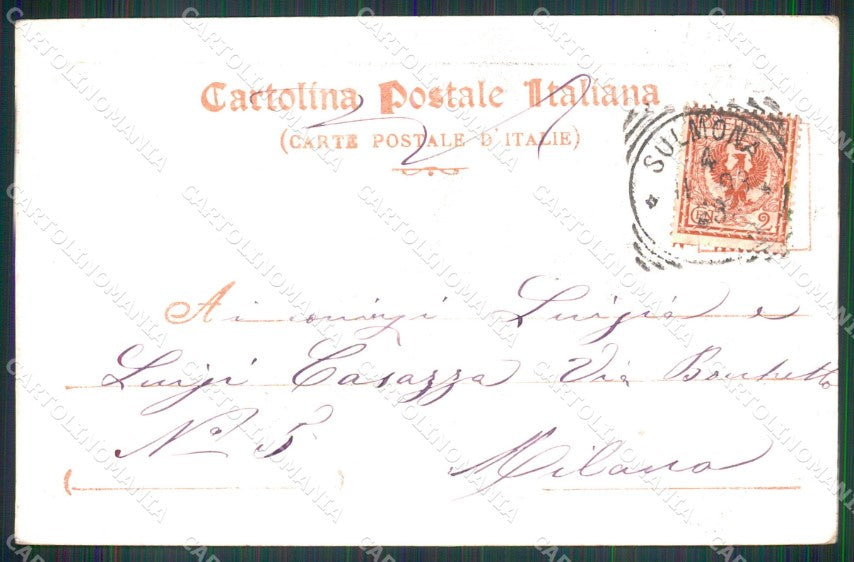 Cartolina Postale Italiana
(CARTE POSTALE D'ITALIE)
SULMONA
4
03
2
Ai coniugi Luigia e
Luigi Casazza Via Bochetto
No 5
Milano
CARTOLINOMANIA